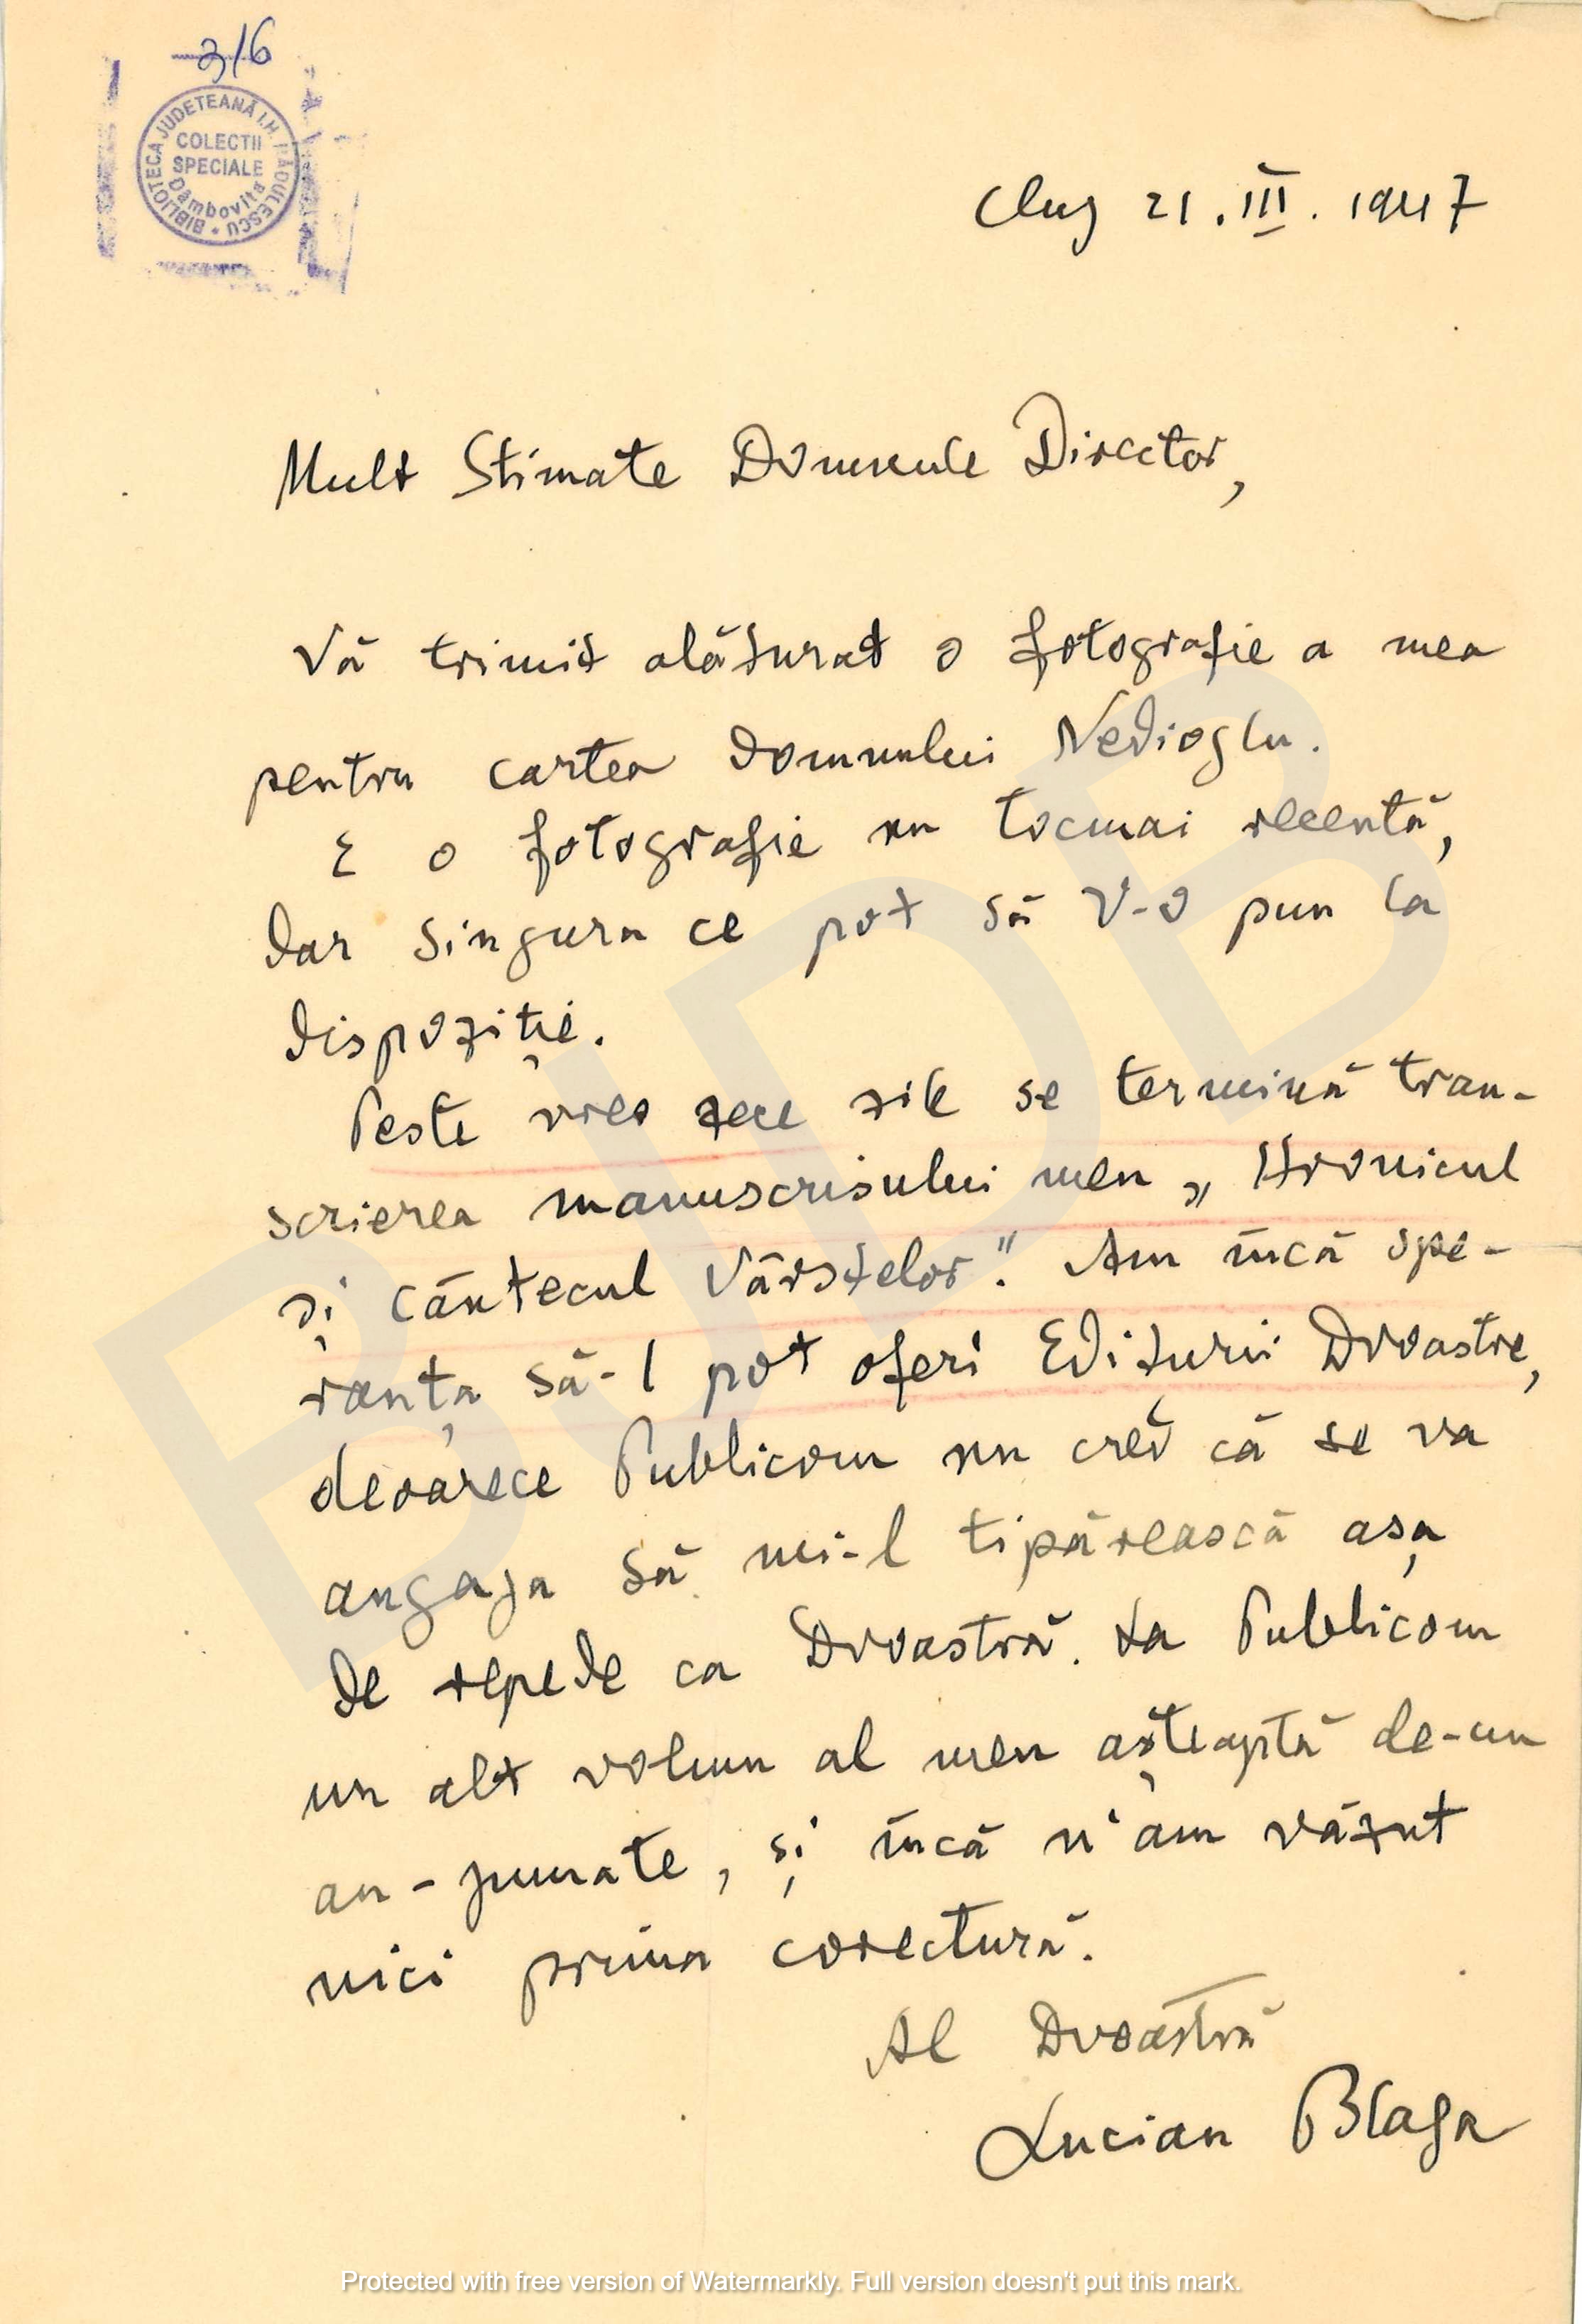 316
BIBLIOTECA JUDEȚEANĂ I.H. RĂDULESCU
COLECTII
SPECIALE
Dâmbovița
Cluj 21.III.1947
Mult Stimate Domnule Director,
Vă trimit alăturat o fotografie a mea
pentru cartea domnului Nedioglu.
E o fotografie nu tocmai recentă,
dar singura ce pot să V-o pun la
dispoziție.
Peste vreo zece zile se termină tran-
scrierea manuscrisului meu „Hronicul
și cântecul Vârstelor". Am încă spe-
ranța să-l pot oferi Editurii Dvoastre,
deoarece Publicom nu cred că se va
angaja să mi-l tipărească așa
de repede ca Dvoastră. La Publicom
un alt volum al meu așteaptă de-un
an-jumate, și încă n'am văzut
nici prima corectură.
Al Dvoastră
Lucian Blaga
BJDB
Protected with free version of Watermarkly. Full version doesn't put this mark.